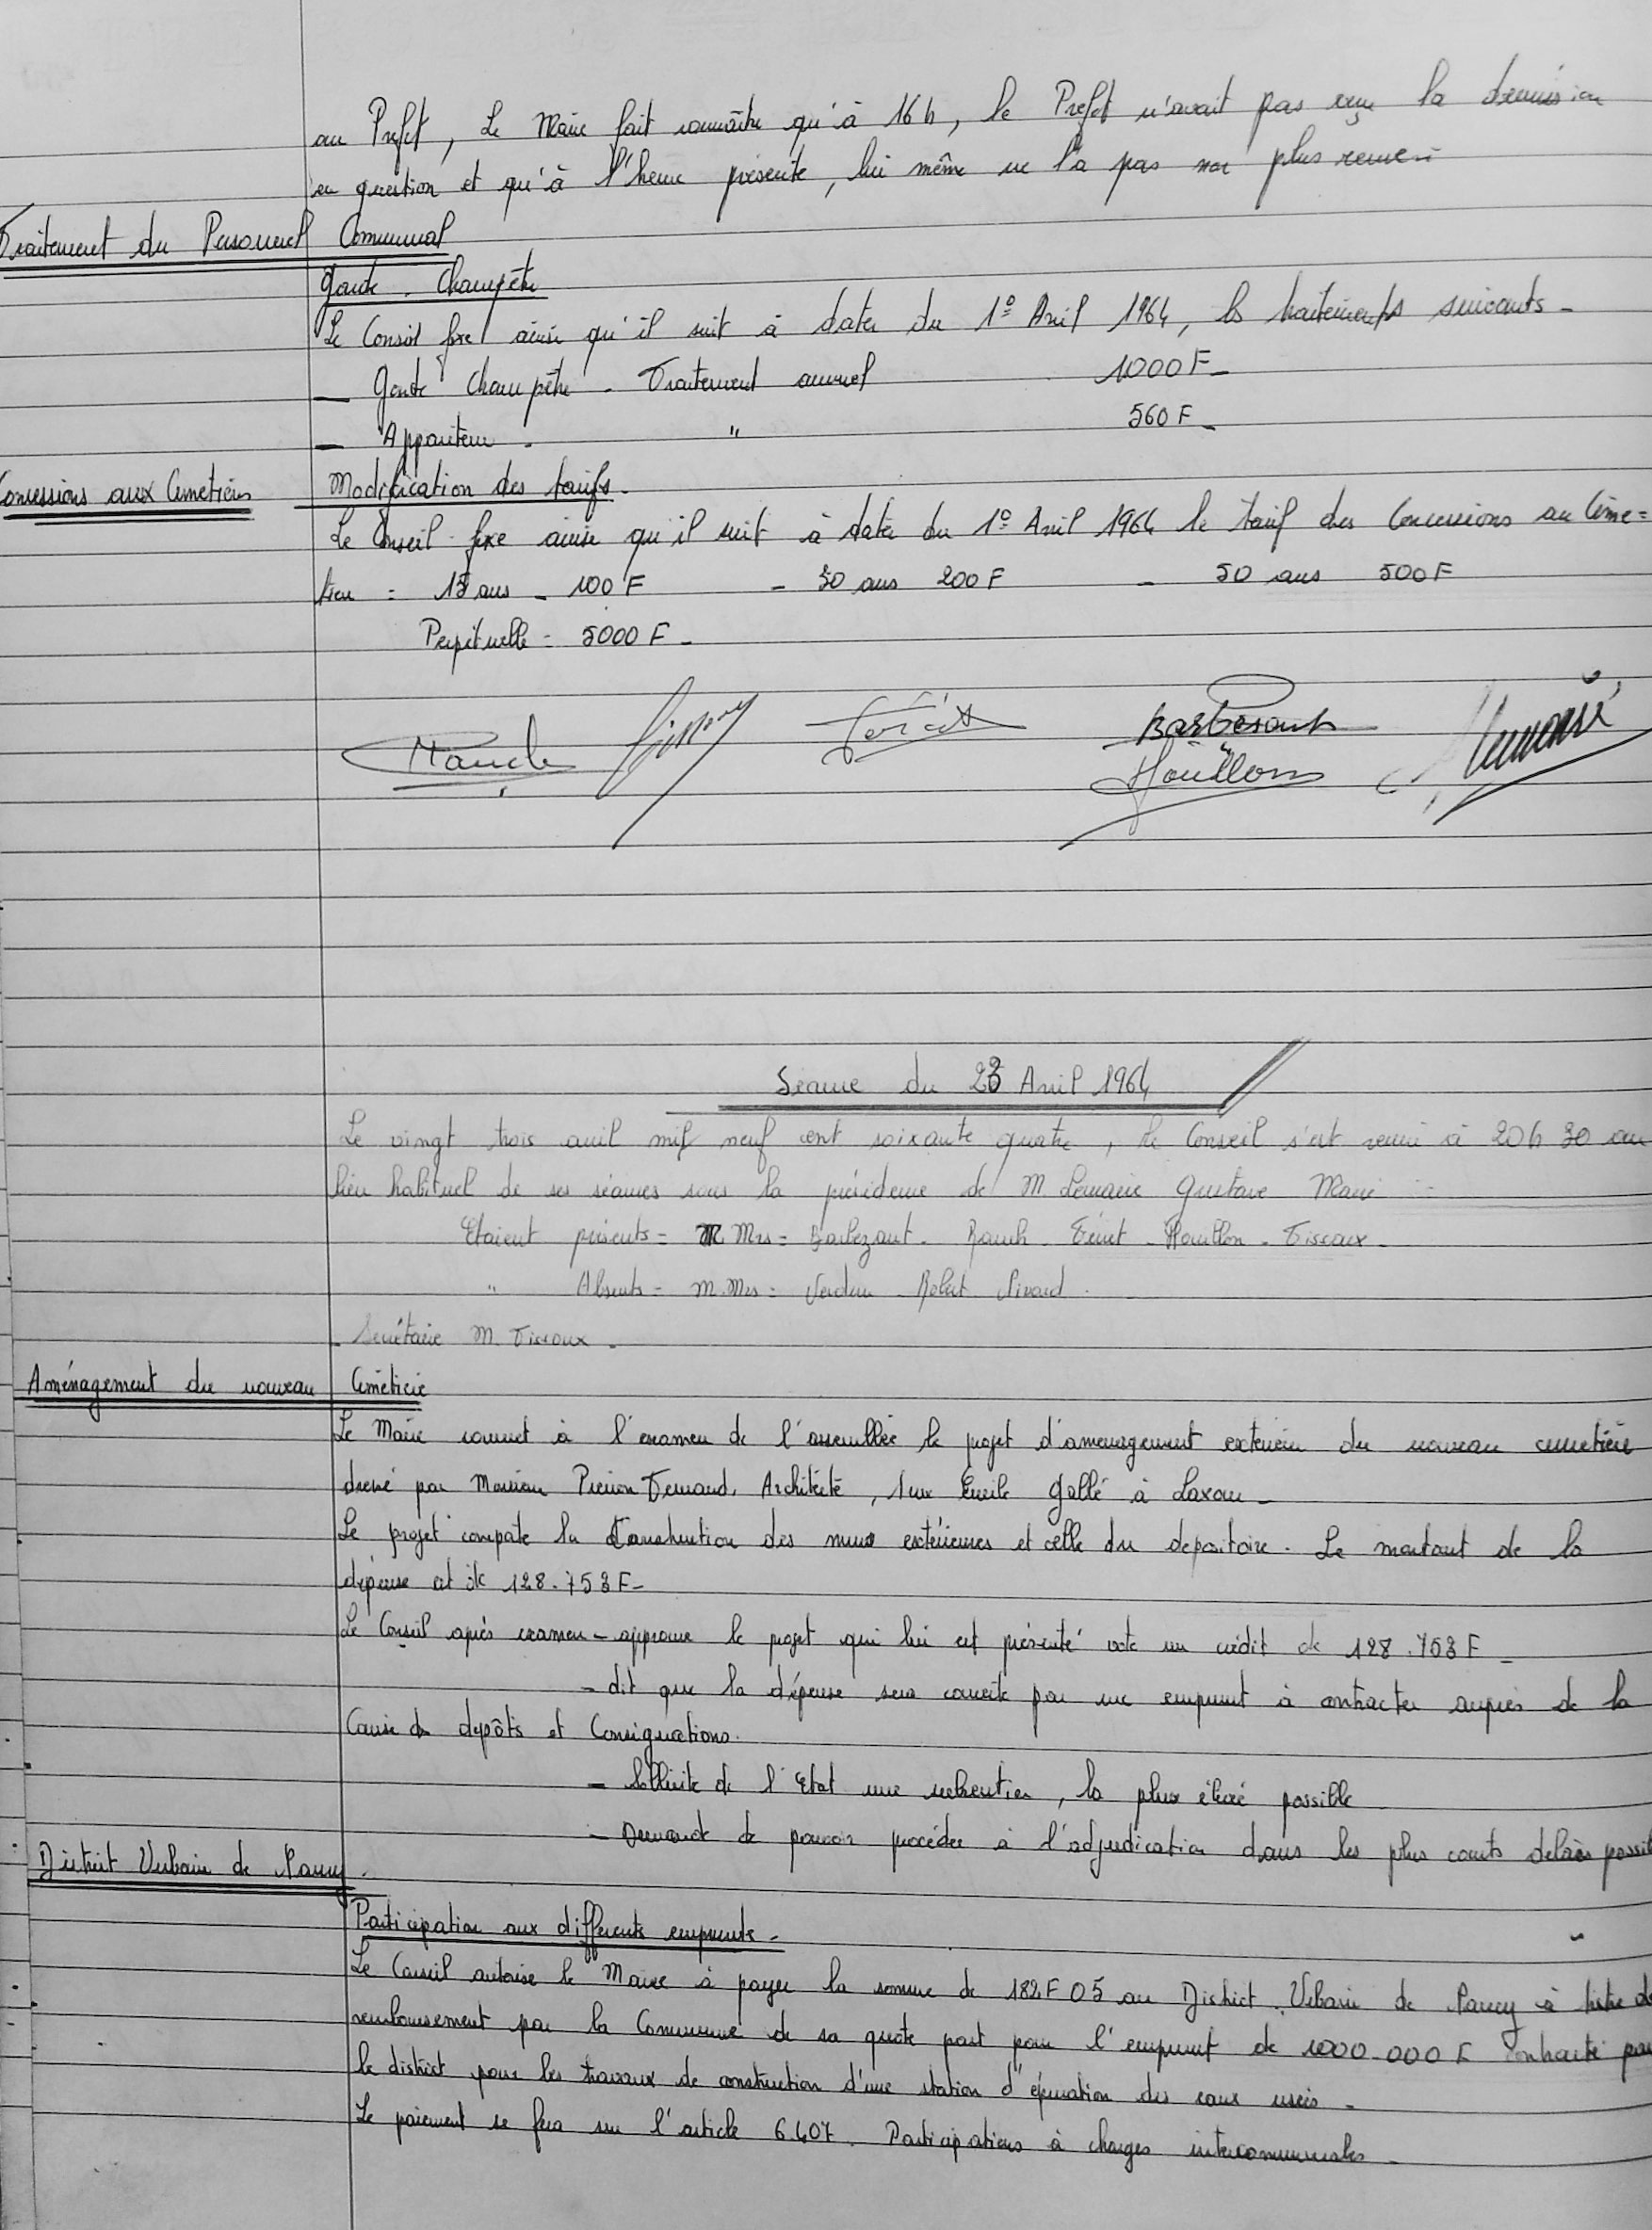 au Préfet, Le Maire fait connaître qu'à 16 h, le Préfet n'avait pas reçu la démission
en question et qu'à l'heure présente, lui même ne l'a pas non plus
Traitement du Personnel Communal
Garde - Champêtre
Le Conseil fixe ainsi qu'il suit à dater du 1º Avril 1964, les traitements suivants -
— Garde Champêtre - Traitement annuel 1000 F -
— Appariteur - " 560 F -
Concessions aux Cimetières Modification des tarifs -
Le Conseil fixe ainsi qu'il suit à dater du 1º Avril 1964 le tarif des Concessions au Cime=
tière = 15 ans - 100 F - 30 ans 200 F - 50 ans 500 F
Perpétuelle = 5000 F -
Rauch Barbesant
Houillon
Séance du 23 Avril 1964
Le vingt trois avril mil neuf cent soixante quatre, le Conseil s'est réuni à 20 h 30 au
lieu habituel de ses séances sous la présidence de M. Lemaire Gustave Maire =
Etaient présents = M Mrs = Barbezant - Rauch - Féret - Houillon - Tissoux -
" Absents = M. Mrs = Verdun - Robert
Secrétaire M. Tissoux -
Aménagement du nouveau Cimetière
Le Maire soumet à l'examen de l'assemblée le projet d'aménagement extérieur du nouveau cimetière
dressé par Monsieur Pierron Fernand, Architecte, 1 rue Emile Gallé à Laxou -
Le projet comporte la Construction des murs extérieures et celle du depositoire. Le montant de la
dépense est de 128.753 F -
Le Conseil après examen - approuve le projet qui lui est présenté vote un crédit de 128.753 F -
- dit que la dépense sera couverte par un emprunt à contracter auprès de la
Caisse des depôts et Consignations.
- Sollicite de l'Etat une subvention, la plus élevée possible
- Demande de pouvoir procéder à l'adjudication dans les plus courts délais possib
District Urbain de Nancy.
Participation aux différents emprunts -
Le Conseil autorise le Maire à payer la somme de 182 F 05 au District Urbain de Nancy à titre de
remboursement par la Commune de sa quote part pour l'emprunt de 1000.000 F contracté par
le district pour les travaux de construction d'une station d'épuration des eaux usées -
Le paiement se fera sur l'article 6.407. Participations à charges intercommunales -